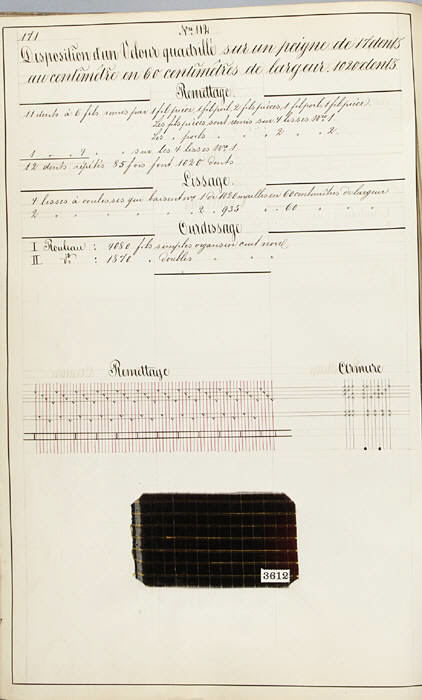 171
No. 112
Disposition d'un Velour quadrillé sur un peigne de 17 dents
au centimètre en 60 centimètres de largeur. 1020 dents.
Remettage.
11 dents à 6 fils remis par 1 fil pièce, 1 fil poil, 2 fils pièces, 1 fil poil, 1 fil pièce.
Les fils pièces sont remis sur 4 lisses No. 1.
Les " poils " " " 2 " " 2.
1 " 4 " " sur les 4 lisses No. 1.
12 dents répétés 85 fois font 1020 dents
Lissage.
4 lisses à coulisses No. 1 de 1020 mailles en 60 centimètres de largeur
2 " " " 2 " 935 " " 60 " " "
Ourdissage
I Rouleau : 4080 fils simples organsin cuit noir.
II do : 1870 " doubles " " "
Remettage
Armure
3612